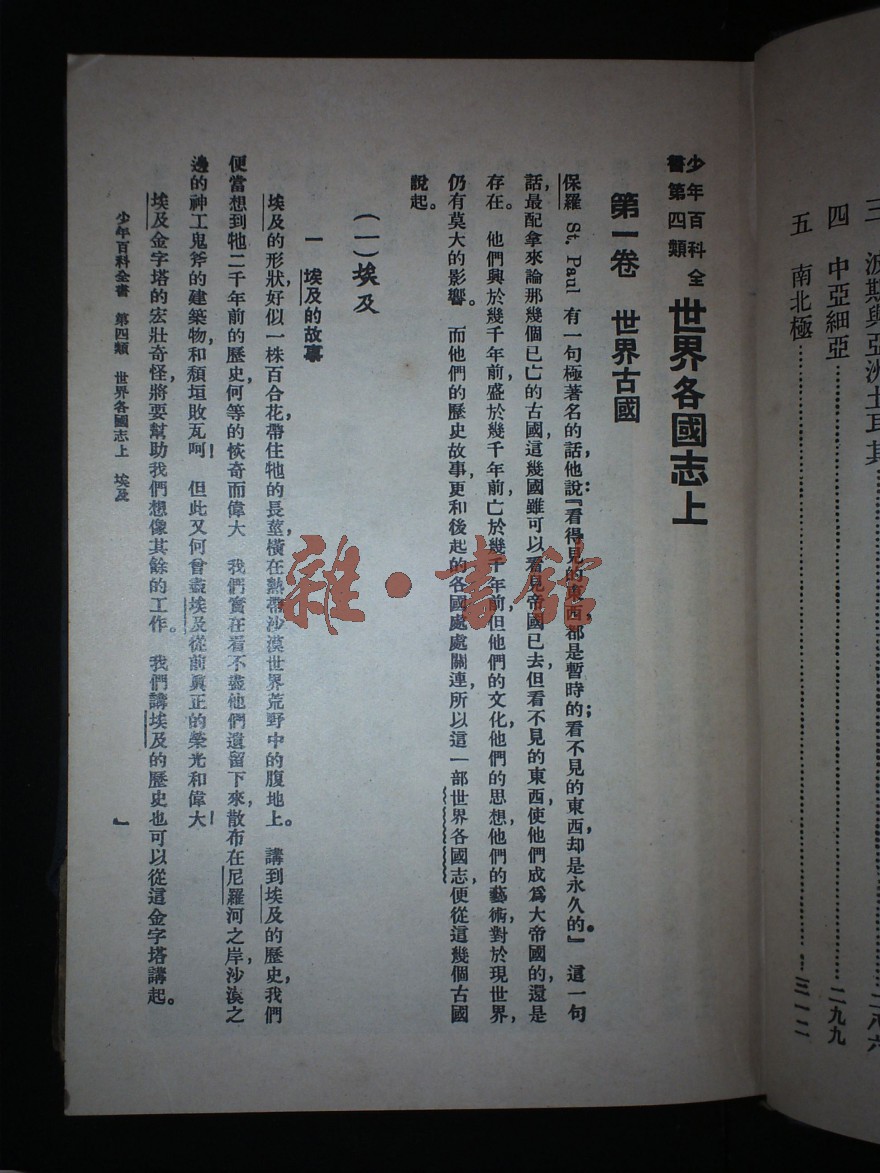 三 波斯與亞洲土耳其……二八六
四 中亞細亞……二九九
五 南北極……三一二
少年百科全書第四類 世界各國志上
第一卷 世界古國
保羅 St. Paul 有一句極著名的話,他說:『看得見的東西都是暫時的;看不見的東西,却是永久的。』這一句
話,最配拿來論那幾個已亡的古國,這幾國雖可以看見帝國已去,但看不見的東西,使他們成爲大帝國的,還是
存在。他們興於幾千年前,盛於幾千年前,亡於幾千年前,但他們的文化,他們的思想,他們的藝術,對於現世界,
仍有莫大的影響。而他們的歷史故事,更和後起的各國處處關連,所以這一部世界各國志,便從這幾個古國
說起。
(一)埃及
一 埃及的故事
埃及的形狀,好似一株百合花,帶住牠的長莖,橫在熱帶沙漠世界荒野中的腹地上。講到埃及的歷史,我們
便當想到牠二千年前的歷史,何等的恢奇而偉大 我們實在看不盡他們遺留下來,散布在尼羅河之岸,沙漠之
邊的神工鬼斧的建築物,和頹垣敗瓦呵!但此又何曾盡埃及從前眞正的榮光和偉大!
埃及金字塔的宏壯奇怪,將要幫助我們想像其餘的工作。我們講埃及的歷史也可以從這金字塔講起。
少年百科全書 第四類 世界各國志上 埃及
雜·書館